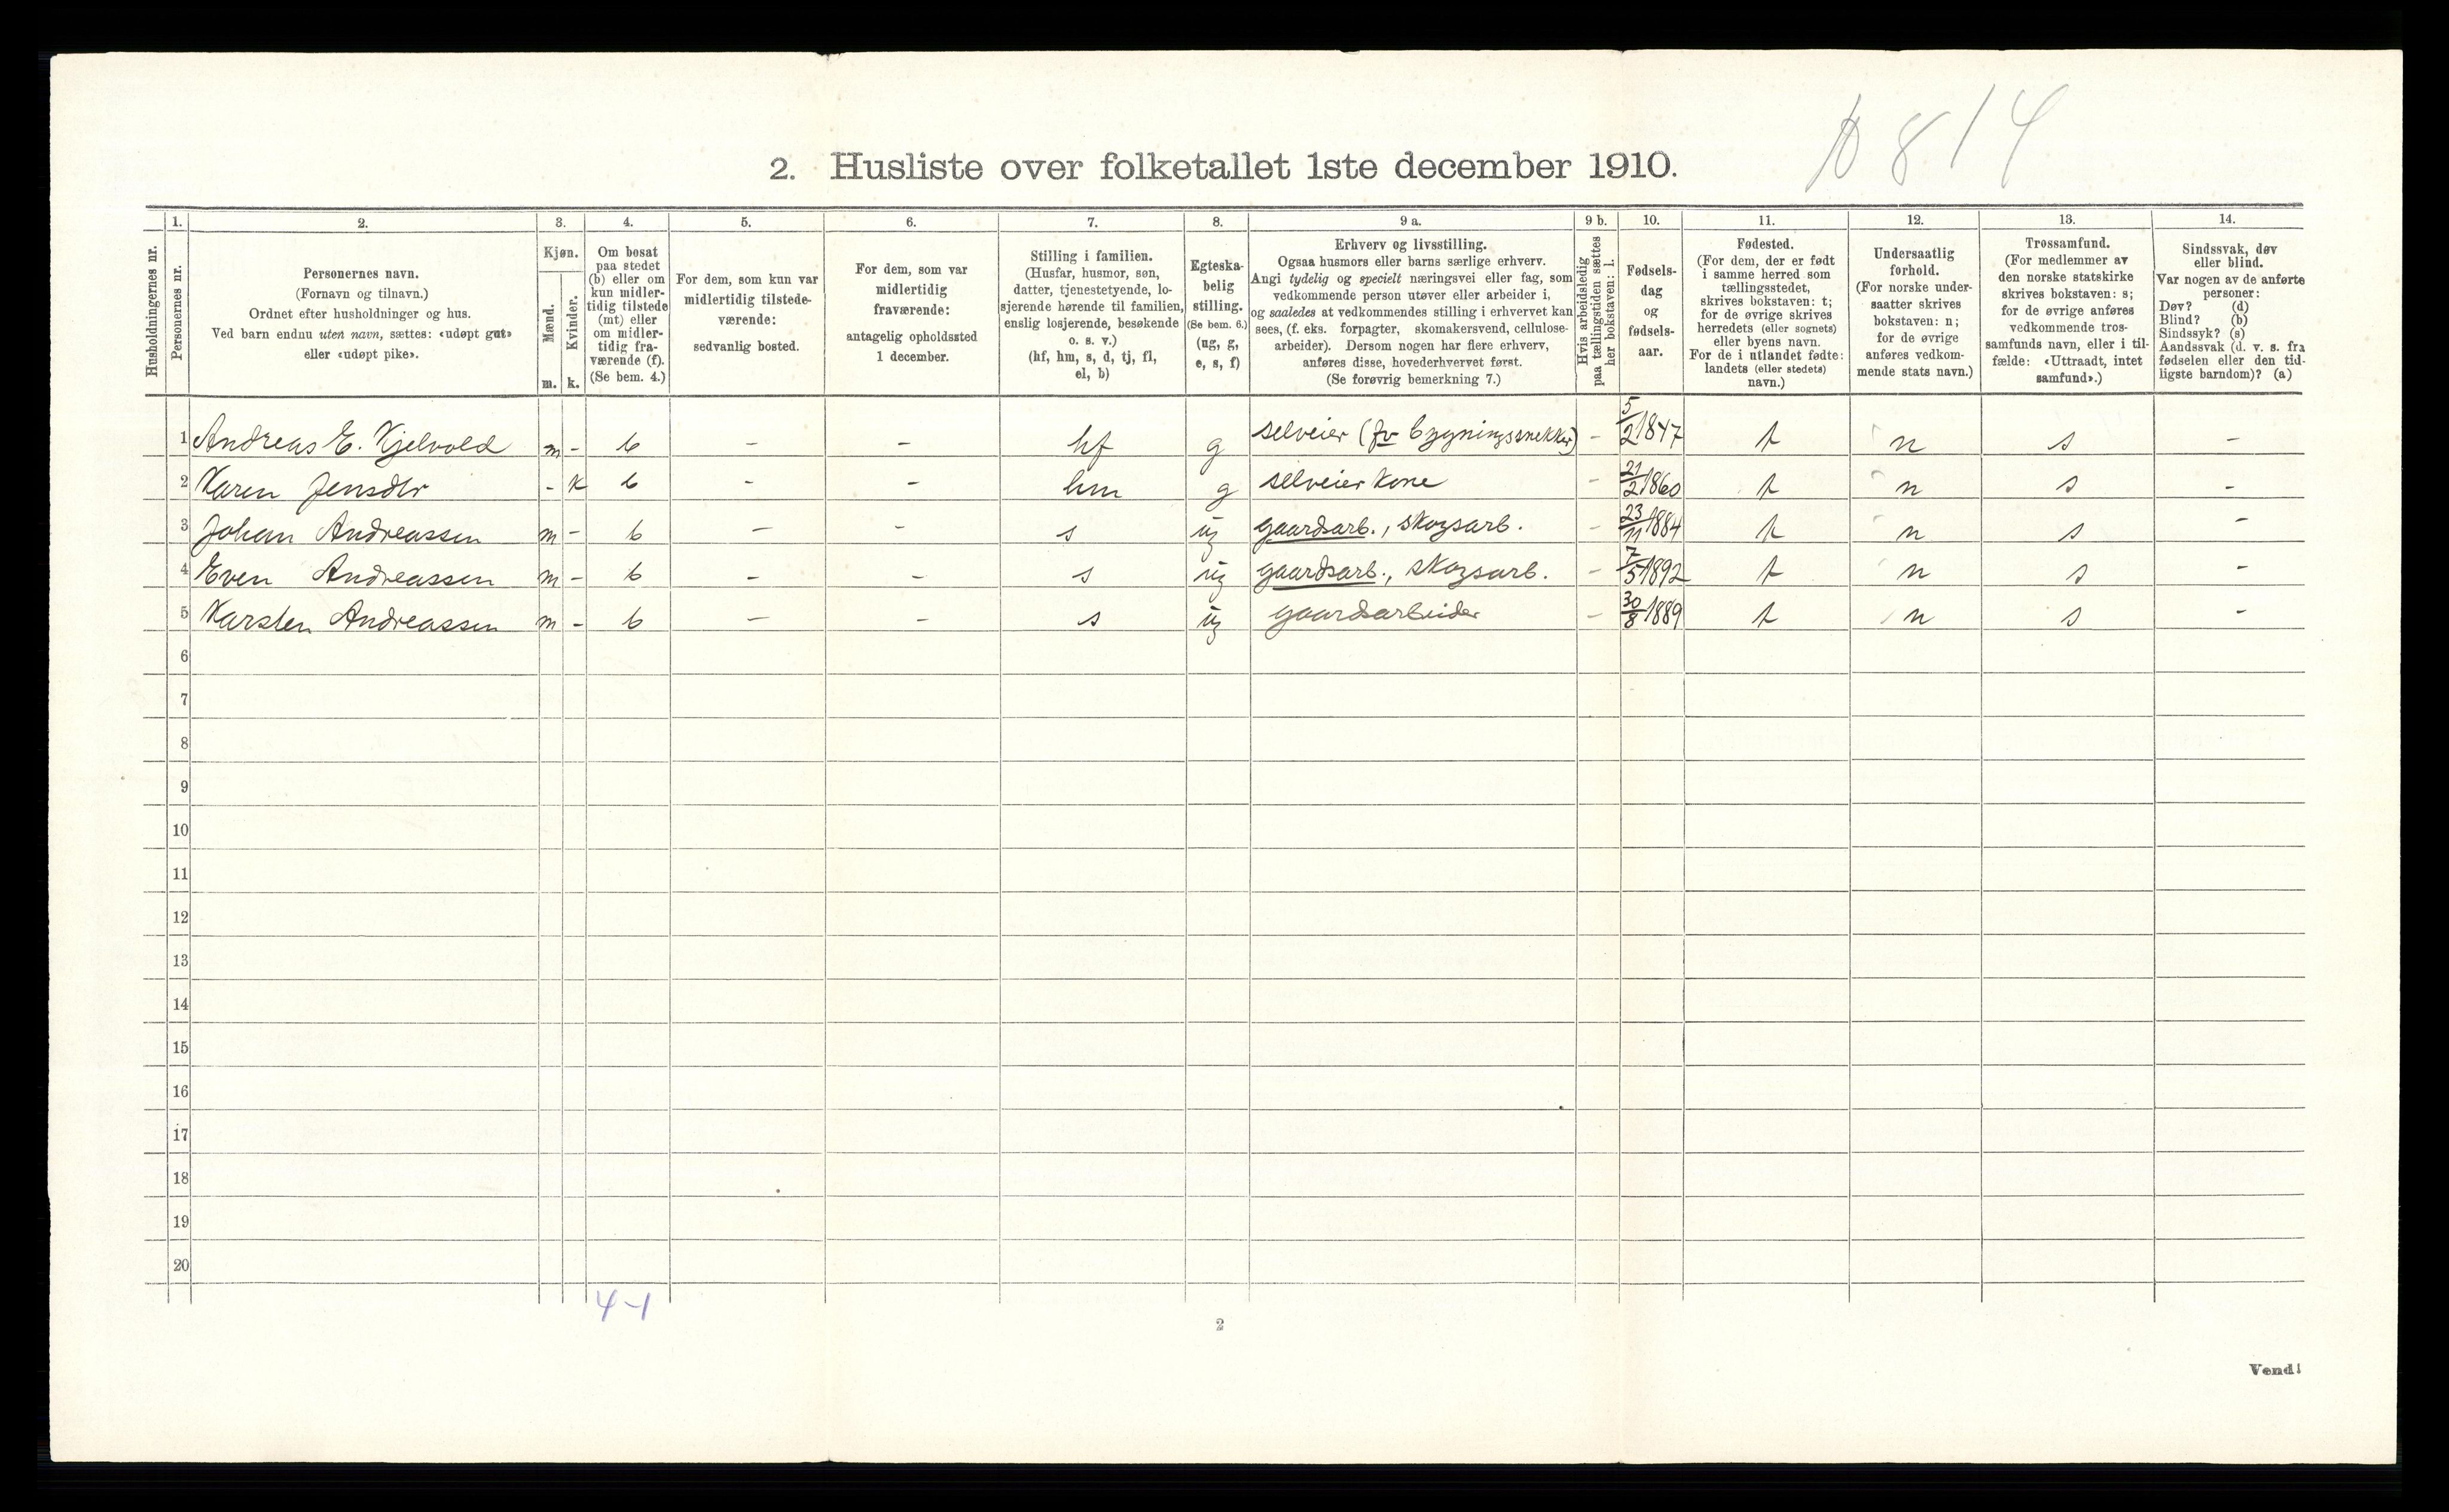 10814
2. Husliste over folketallet 1ste december 1910.
Husholdningernes nr.
1. Personernes nr.
2. Personernes navn.
(Fornavn og tilnavn.)
Ordnet efter husholdninger og hus.
Ved barn endnu uten navn, sættes: «udøpt gut»
eller «udøpt pike».
3. Kjøn.
Mænd. m.
Kvinder. k.
4. Om bosat
paa stedet
(b) eller om
kun midler-
tidig tilstede
(mt) eller
om midler-
tidig fra-
værende (f).
(Se bem. 4.)
5. For dem, som kun var
midlertidig tilstede-
værende:
sedvanlig bosted.
6. For dem, som var
midlertidig
fraværende:
antagelig opholdssted
1 december.
7. Stilling i familien.
(Husfar, husmor, søn,
datter, tjenestetyende, lo-
sjerende hørende til familien,
enslig losjerende, besøkende
o. s. v.)
(hf, hm, s, d, tj, fl,
el, b)
8. Egteska-
belig
stilling.
(Se bem. 6.)
(ug, g,
e, s, f)
9 a. Erhverv og livsstilling.
Ogsaa husmors eller barns særlige erhverv.
Angi tydelig og specielt næringsvei eller fag, som
vedkommende person utøver eller arbeider i,
og saaledes at vedkommendes stilling i erhvervet kan
sees, (f. eks. forpagter, skomakersvend, cellulose-
arbeider). Dersom nogen har flere erhverv,
anføres disse, hovederhvervet først.
(Se forøvrig bemerkning 7.)
9 b. Hvis arbeidsledig
paa tællingstiden sættes
her bokstaven: l.
10. Fødsels-
dag
og
fødsels-
aar.
11. Fødested.
(For dem, der er født
i samme herred som
tællingsstedet,
skrives bokstaven: t;
for de øvrige skrives
herredets (eller sognets)
eller byens navn.
For de i utlandet fødte:
landets (eller stedets)
navn.)
12. Undersaatlig
forhold.
(For norske under-
saatter skrives
bokstaven: n;
for de øvrige
anføres vedkom-
mende stats navn.)
13. Trossamfund.
(For medlemmer av
den norske statskirke
skrives bokstaven: s;
for de øvrige anføres
vedkommende tros-
samfunds navn, eller i til-
fælde: «Uttraadt, intet
samfund».)
14. Sindssvak, døv
eller blind.
Var nogen av de anførte
personer:
Døv? (d)
Blind? (b)
Sindssyk? (s)
Aandssvak (d. v. s. fra
fødselen eller den tid-
ligste barndom)? (a)
1 Andreas E. Kjelvold m - b - - hf g selveier (fv bygningssnekker) - 5/2 1847 t n s -
2 Karen Jensdtr - k b - - hm g selveier kone - 21/2 1860 t n s -
3 Johan Andreassen m - b - - s ug gaardsarb., skogsarb. - 23/11 1884 t n s -
4 Even Andreassen m - b - - s ug gaardsarb., skogsarb. - 7/5 1892 t n s -
5 Karsten Andreassen m - b - - s ug gaardsarbeider - 30/8 1889 t n s -
6
7
8
9
10
11
12
13
14
15
16
17
18
19
20
4-1
2
Vend!